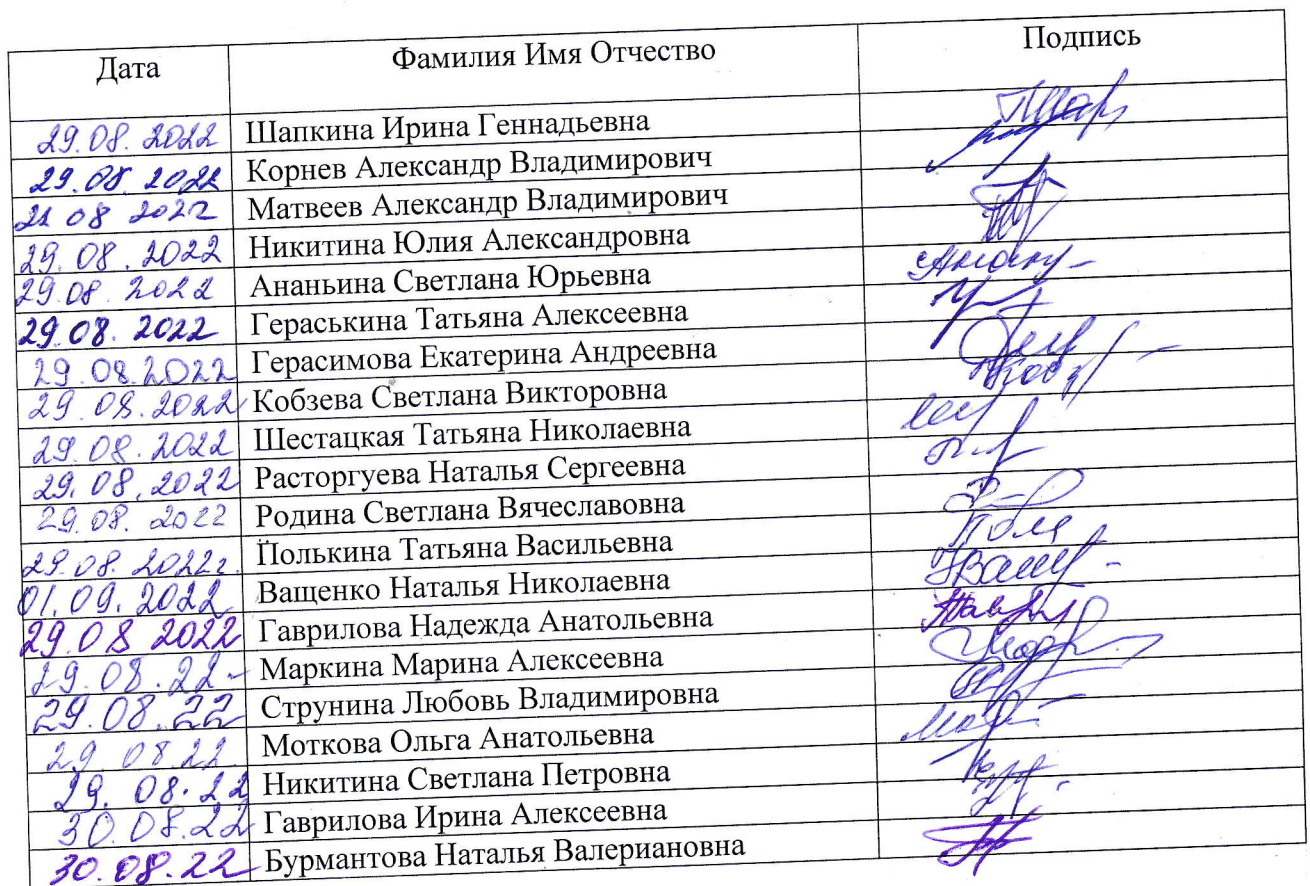 Дата Фамилия Имя Отчество Подпись
29.08.2022 Шапкина Ирина Геннадьевна
29.08.2022 Корнев Александр Владимирович
08 2022 Матвеев Александр Владимирович
29.08.2022 Никитина Юлия Александровна
29.08.2022 Ананьина Светлана Юрьевна
29.08.2022 Гераськина Татьяна Алексеевна
29.08.2022 Герасимова Екатерина Андреевна
29.08.2022 Кобзева Светлана Викторовна
29.08.2022 Шестацкая Татьяна Николаевна
29.08.2022 Расторгуева Наталья Сергеевна
29.08.2022 Родина Светлана Вячеславовна
29.08.2022г. Полькина Татьяна Васильевна
01.09.2022 Ващенко Наталья Николаевна
29.08 2022 Гаврилова Надежда Анатольевна
29.08.22- Маркина Марина Алексеевна
29.08.22 Струнина Любовь Владимировна
29.08.22. Моткова Ольга Анатольевна
29.08.22 Никитина Светлана Петровна
30.08.22 Гаврилова Ирина Алексеевна
30.08.22 Бурмантова Наталья Валериановна